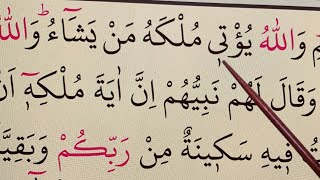 وَاللهُ يُؤْتٖي مُلْكَهُ مَنْ يَشَٓاءُؕ وَاللهُ
وَقَالَ لَهُمْ نَبِيُّهُمْ اِنَّ اٰيَةَ مُلْكِهٖٓ اَنْ
فٖيهِ سَكٖينَةٌ مِنْ رَبِّكُمْ وَبَقِيَّةٌ